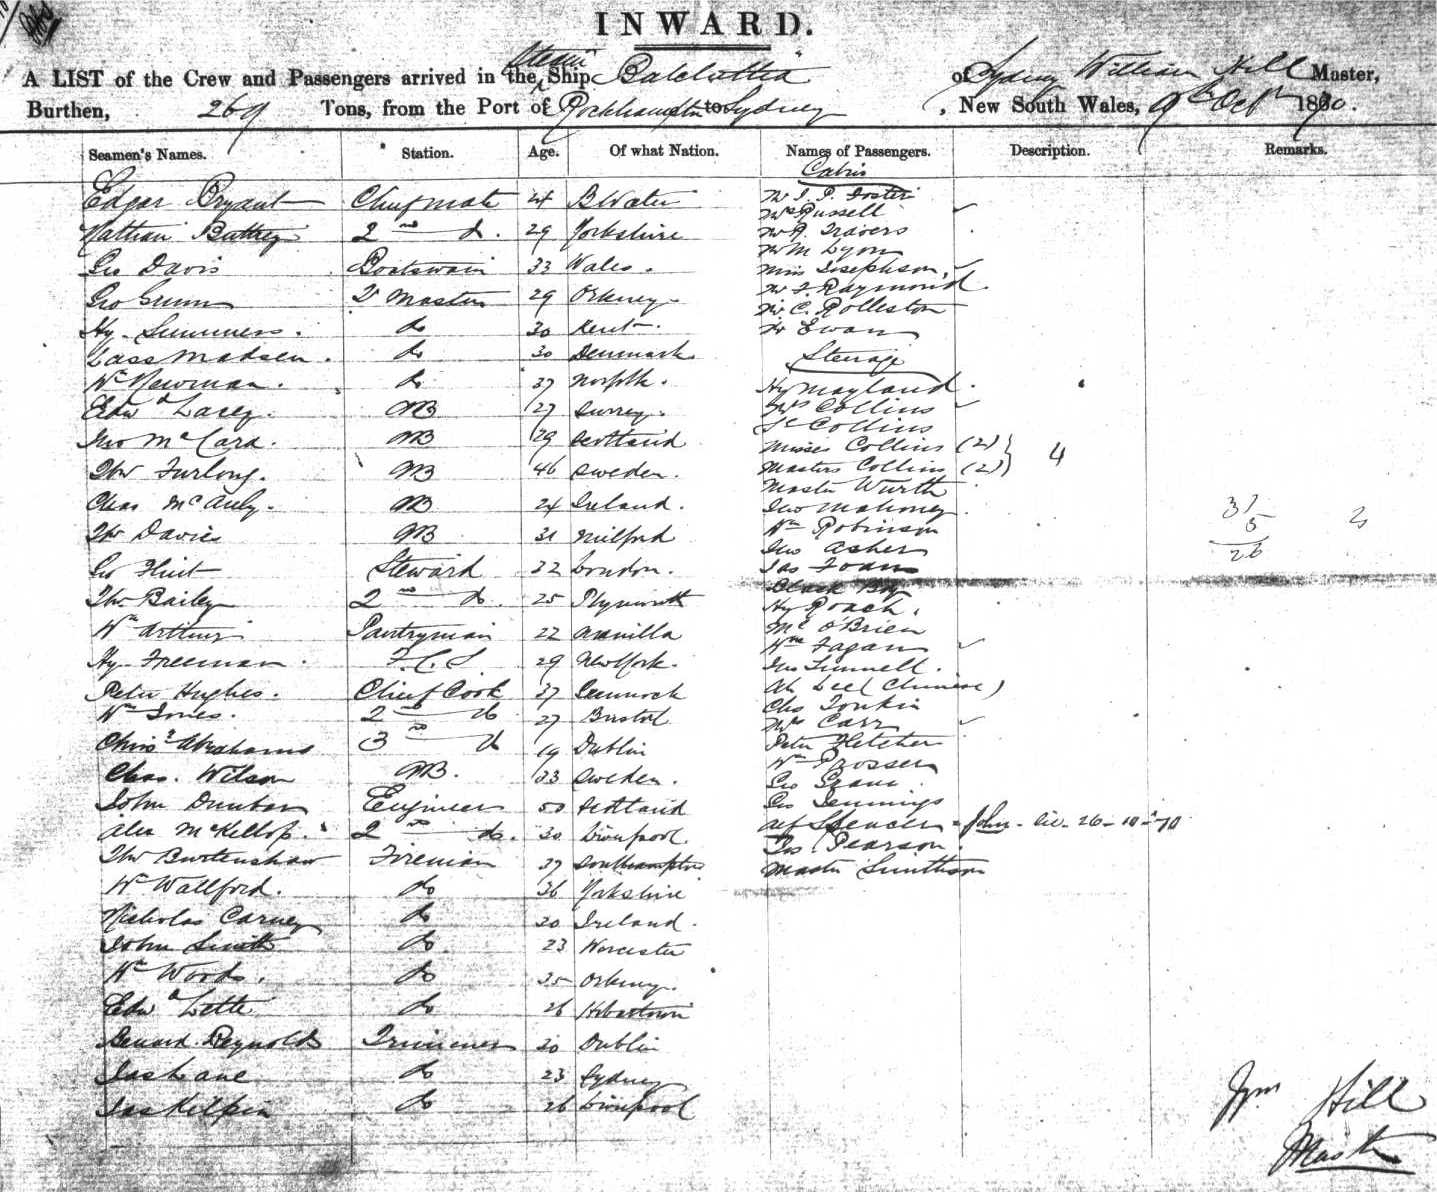 INWARD.
A LIST of the Crew and Passengers arrived in the Steam Ship Balclutha of Sydney William Hill Master,
Burthen, 269 Tons, from the Port of Rockhampton to Sydney, New South Wales, 9th Octr 1870.
Seamen's Names. Station. Age. Of what Nation. Names of Passengers. Description. Remarks.
Edgar Bryant Chief mate 24 B Water
Nathan Buttrey 2nd do. 29 Yorkshire
Geo Davis Boatswain 33 Wales.
Geo Gunn Master 29 Orkney
Hy Summers. do 30 Kent.
Lass Madsen. do 30 Denmark
Wm Newman. do 37 Norfolk.
Edwd Lacey. AB 27 Surrey.
Jno McCara. AB 29 Scotland
Thos Furlong. AB 46 Sweden.
Chas McAuly. AB 24 Ireland.
Thos Davies AB 31 Milford
Geo Flint Steward 32 London.
Thos Bailey 2nd do. 25 Plymouth
Wm Arthur Pantryman 22 Manilla
Hy Freeman. F.C.S 29 New York.
Peter Hughes. Chief Cook 37 Greenock
Wm Jones. 2nd do 27 Bristol
Chrisr Abrahams 3rd do 19 Dublin
Chas. Wilson AB. 33 Sweden.
John Dunbar Engineer 50 Scotland
Alex McKellop. 2nd do. 30 Liverpool
Thos Burtenshaw Fireman 37 Southampton
Wm Wallford. do 36 Yorkshire
Nicholas Carney do 30 Ireland.
John Smith do 23 Worcester
Wm Woods. do 35 Orkney.
Edwd Lette do 26 Hobartown
Reynolds Trimmer 30 Dublin
Jas Lane do 23 Sydney
Jas Kilpin do 26 Liverpool
Cabin
Mr J. P. Foster
Mrs Russell
Mr J. Travers
Mr M Lyon
Miss Josephson,
Mr F Raymond.
Mr C. Rolleston
Mr Ewan
Steerage
Hy Mayland.
Mrs Collins
Collins
Misses Collins (2)
Masters Collins (2) } 4
Master Wurth
Jno Mahoney
Wm Robinson
Jno Asher
Jas Foans
Black Boy
Hy Roach.
O'Brien
Wm Fagan
Jno Tunnell.
Ah Lee (Chinese)
Chs Tonkin
Mrs Carr
Peter Fletcher
Wm Prosser
Geo Grant
Geo Jennings
Alf Spencer = John - liv. 26-10-70
Jos. Pearson.
Master Smithson
31
5
26
2
Wm Hill
Master